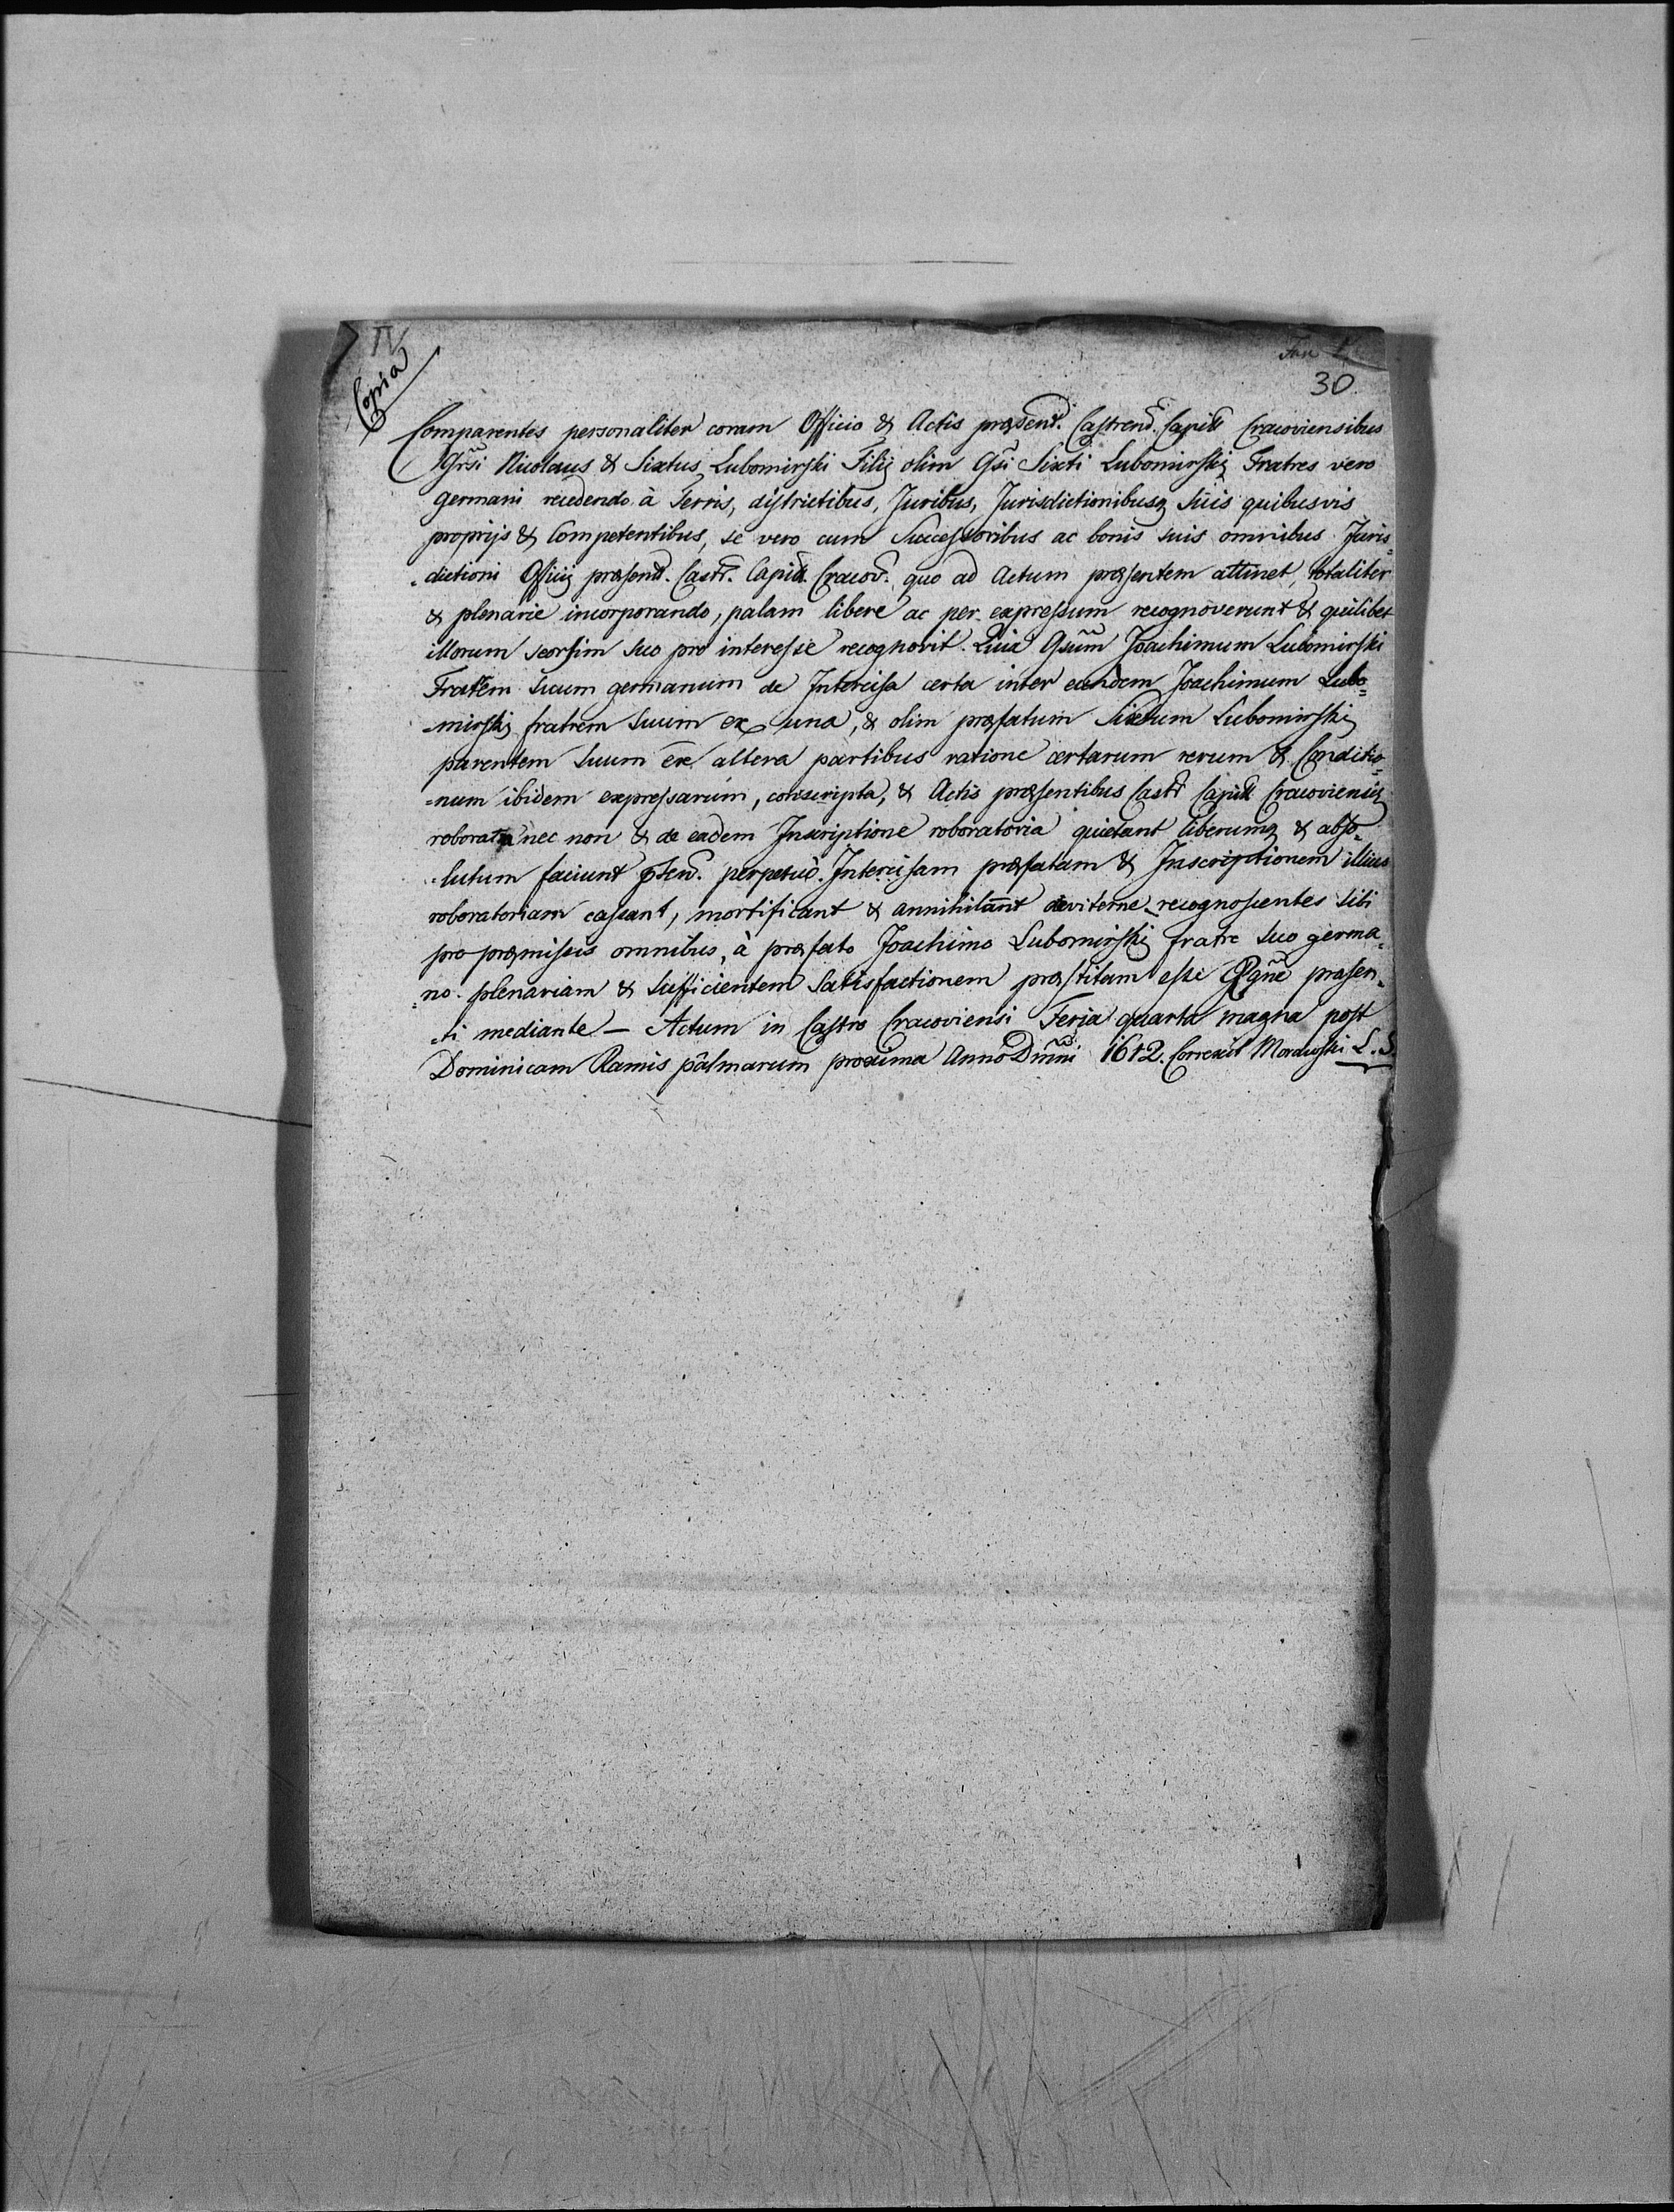 IV
Copia
30
Comparentes personaliter coram Officio & Actis præsent. Castren. Capitl Cracoviensibus
Gnsi Nicolaus & Sixtus Lubomirski Filij olim Gsi Sixti Lubomirskį Fratres vero
germani recedendo à Terris, districtibus, Juribus, Jurisdictionibusq suis quibusvis
proprijs & Competentibus, se vero cum Successoribus ac bonis suis omnibus Juris=
=dictioni Officij præsent. Castr. Capitl. Cracov. quo ad Actum præsentem attinet, totaliter
& plenarie incorporando, palam libere ac per expressum recognoverunt & quilibet
illorum seorsim suo pro interesse recognovit. Quia Gsum Joachimum Lubomirski
Fratrem suum germanum de Intercisa certa inter eundem Joachimum Lubo=
=mirski fratrem suum ex una, & olim præfatum Sixtum Lubomirski
parentem suum ex altera partibus ratione certarum rerum & Conditio=
=num ibidem expressarum, conscripta, & Actis præsentibus Castr Capitl Cracoviensi
roborata nec non & de eadem Inscriptione roboratoria quietant liberumq & abso=
=lutum faciunt perpetuò. Intercisam præfatam & Inscriptionem illius
roboratoriam cassant, mortificant & annihilant æviterne recognoscentes sibi
pro præmissis omnibus, à præfato Joachimo Lubomirski fratre suo germa=
=no plenariam & sufficientem satisfactionem præstitam esse præsen=
=ti mediante – Actum in Castro Cracoviensi Feria quarta magna post
Dominicam Ramis palmarum proxima Anno Dnni 1612. Correxit L.S.